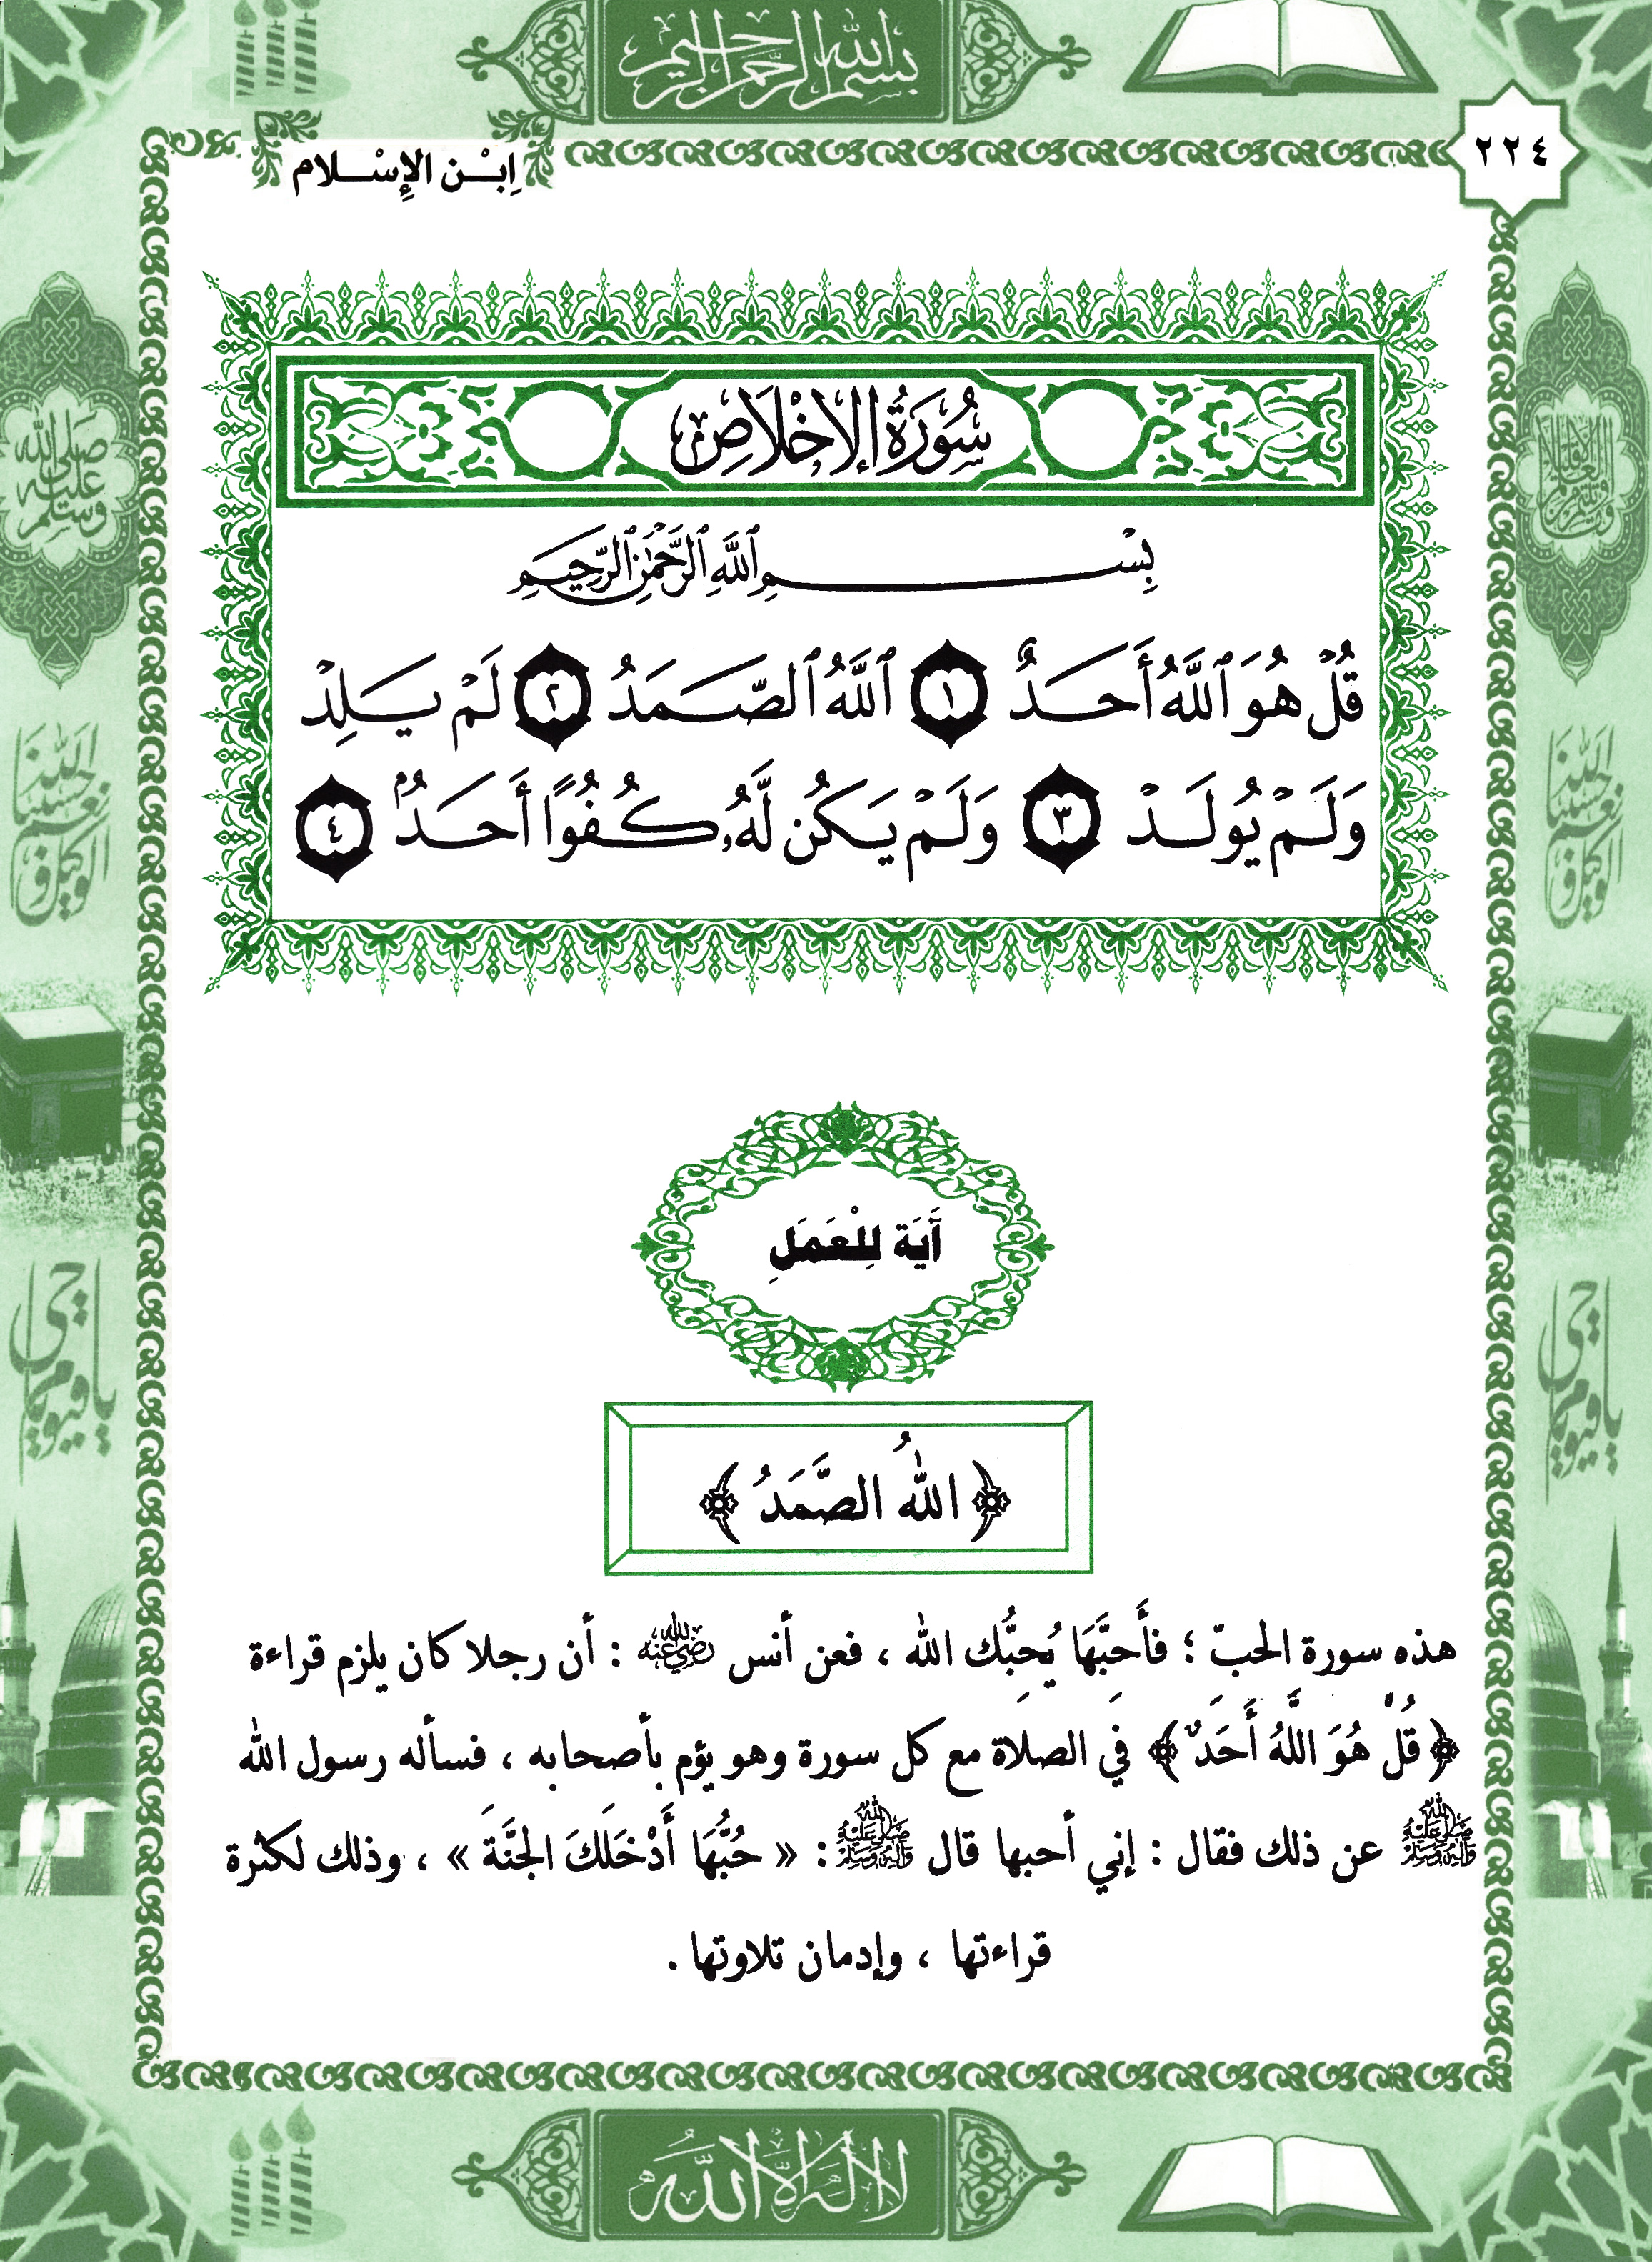 بسم الله الرحمن الرحيم
٢٢٤
اِبْن الإِسْلام
سُورَةُ الإِخْلَاصِ
بِسْمِ ٱللَّهِ ٱلرَّحْمَٰنِ ٱلرَّحِيمِ
قُلْ هُوَ ٱللَّهُ أَحَدٌ ١ ٱللَّهُ ٱلصَّمَدُ ٢ لَمْ يَلِدْ
وَلَمْ يُولَدْ ٣ وَلَمْ يَكُن لَّهُۥ كُفُوًا أَحَدٌۢ ٤
آيَة لِلْعَمَلِ
﴿ اللهُ الصَّمَدُ ﴾
هذه سورة الحبّ ؛ فأَحِبَّهَا يُحِبُّك الله ، فعن أنس رضي الله عنه : أن رجلا كان يلزم قراءة
﴿قُلْ هُوَ اللَّهُ أَحَدٌ﴾ فِي الصلاة مع كل سورة وهو يؤم بأصحابه ، فسأله رسول الله
ﷺ عن ذلك فقال : إني أحبها قال ﷺ : « حُبُّهَا أَدْخَلَكَ الجنَّةَ » ، وذلك لكثرة
قراءتها ، وإدمان تلاوتها .
صلى الله عليه وسلم
حسبنا الله ونعم الوكيل
حسبنا الله ونعم الوكيل
يا حي يا قيوم
يا حي يا قيوم
لا اله الا الله